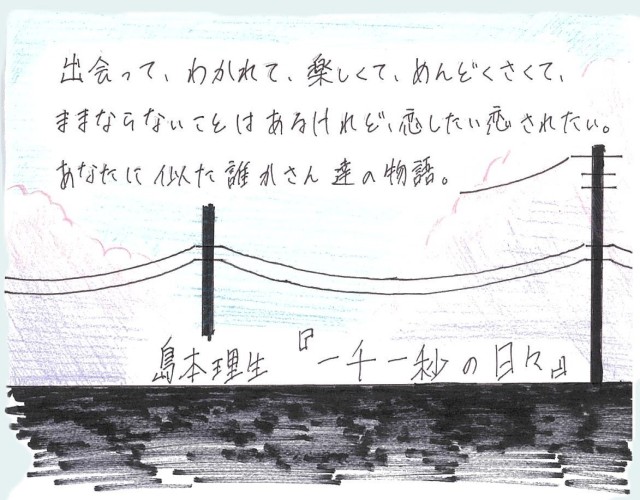 出会って、わかれて、楽しくて、めんどくさくて、
ままならないことはあるけれど、恋したい恋されたい。
あなたに似た誰かさん達の物語。
島本理生『一千一秒の日々』